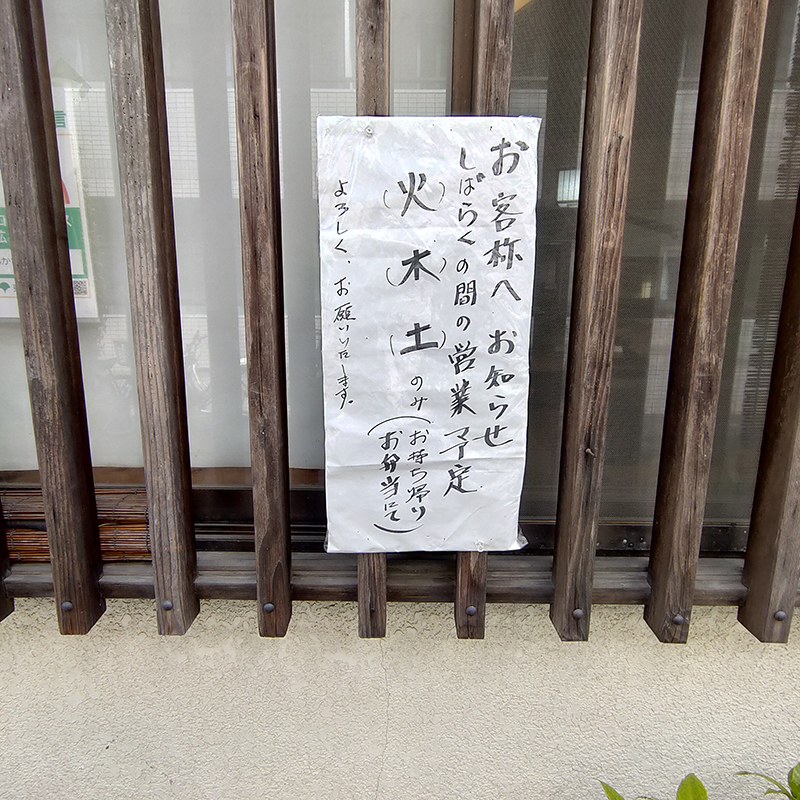 お客様へ お知らせ
しばらくの間の営業予定
(火)(木)(土)のみ(お持ち帰りお弁当にて)
よろしく、お願いいたします。